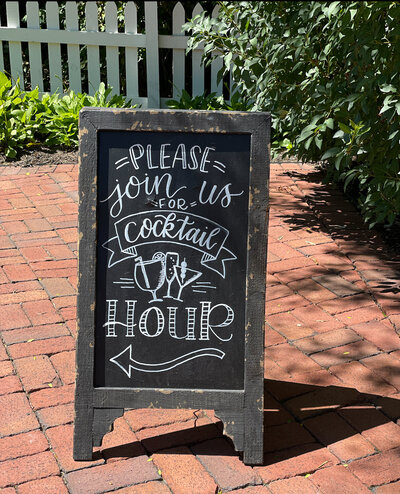 PLEASE
join us
FOR
Cocktail
HOUR